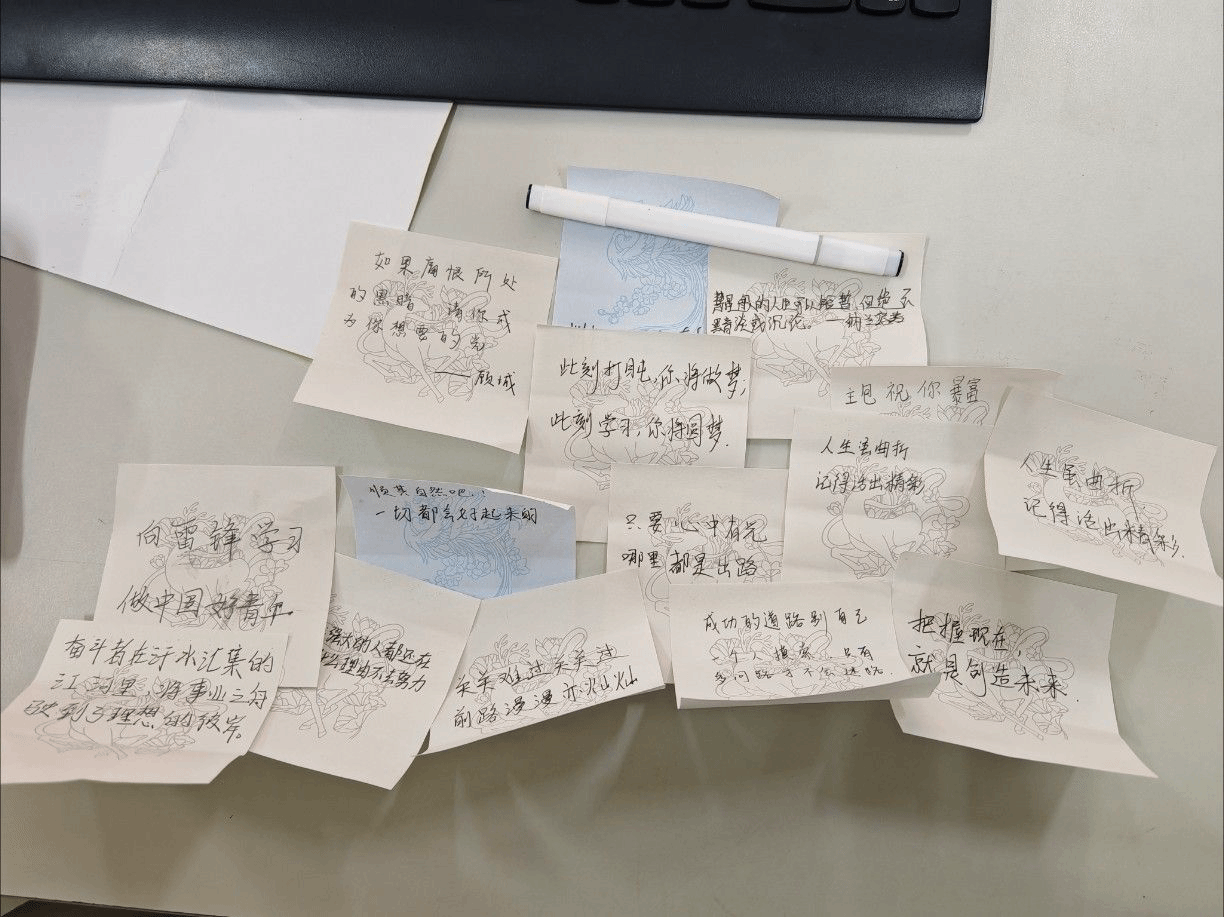 如果痛恨所处
的黑暗 请你成
为你想要的光
——顾城
的人可以
或沉沦。——纳兰
此刻打盹,你将做梦;
此刻学习,你将圆梦.
主包祝你暴富
人生虽曲折
记得活出精彩
人生虽曲折
记得活出精彩.
向雷锋学习
做中国好青年
顺其自然吧!
一切都会好起来的
只要心中有光
哪里都是出路
奋斗者在汗水汇集的
江河里,将事业之舟
驶到了理想的彼岸。
强大的人都还在
什么理由不去努力
关关难过关关过
前路漫漫亦灿灿
成功的道路别自己
一个人摸索 只有
多问路才不会迷路.
把握现在,
就是创造未来.